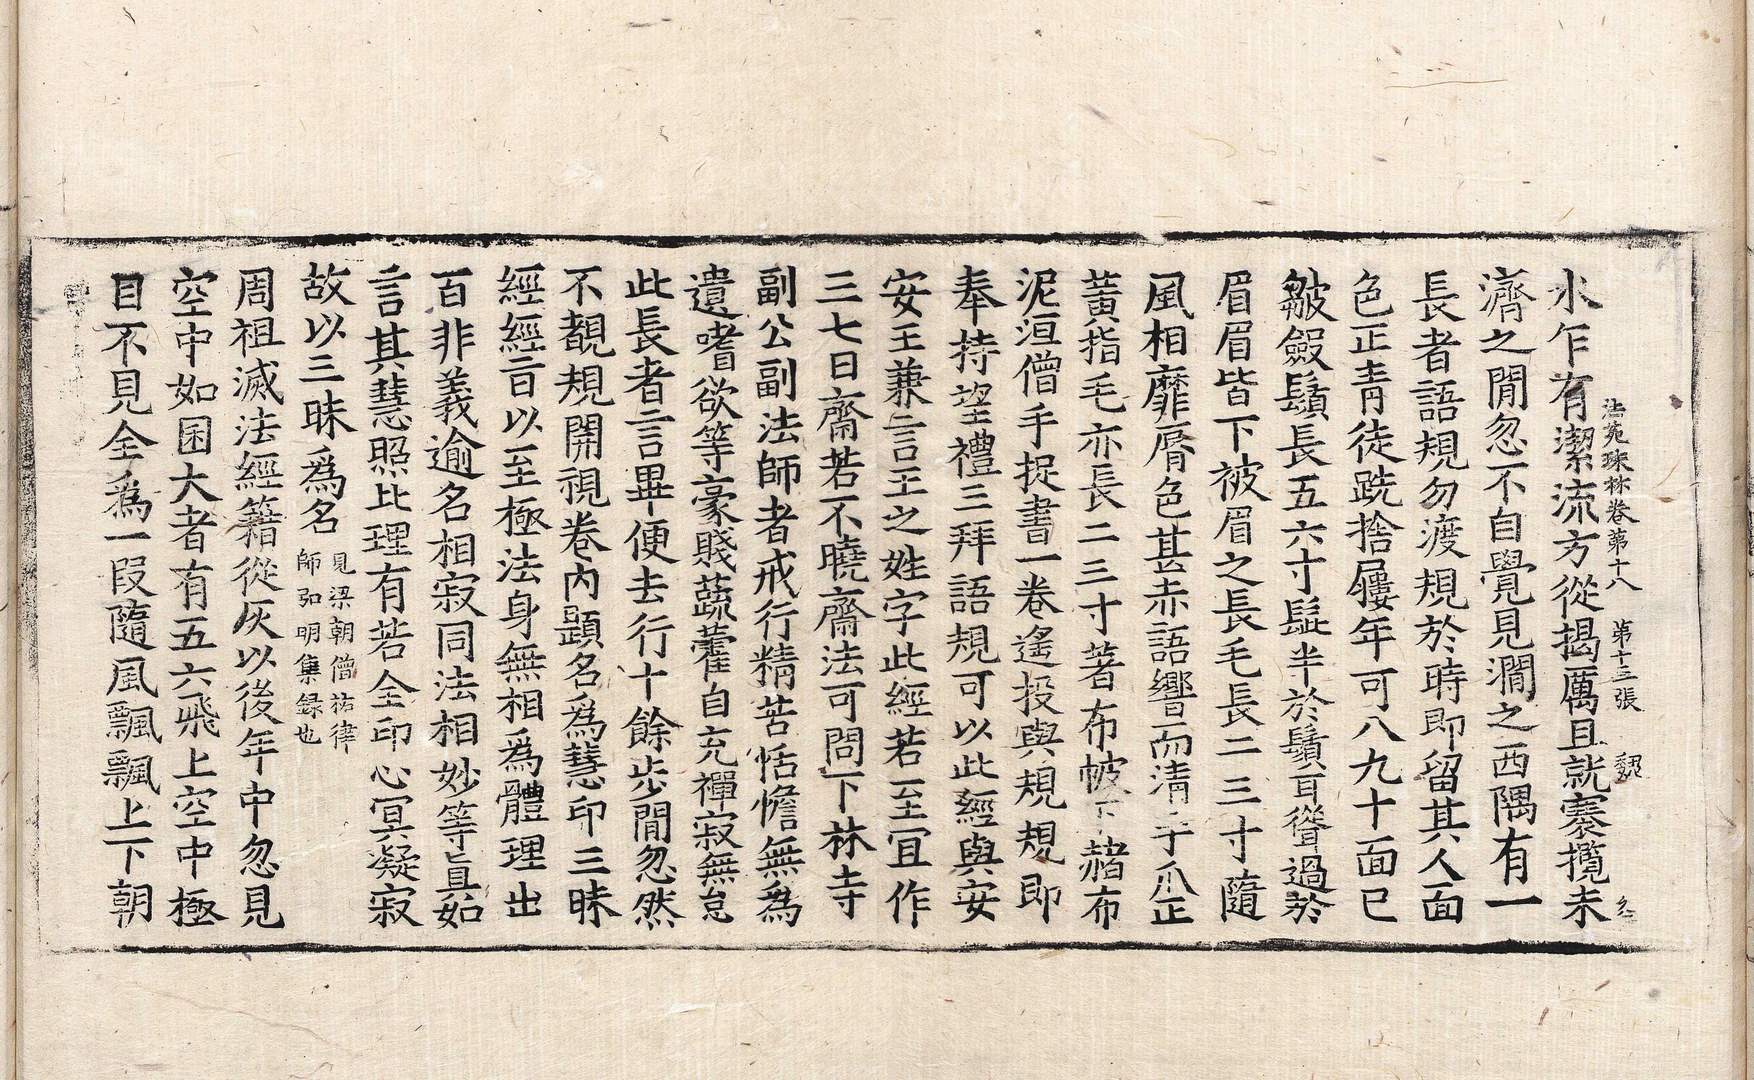 法苑珠林卷第十八　第十三張　魏
水乍有潔流方從揭厲且就褰攬未
濟之閒忽不自覺見澗之西隅有一
長者語規勿渡規於時即留其人面
色正青徒跣捨屨年可八九十面已
皺斂鬚長五六寸髭半於鬚耳聳過於
眉眉皆下被眉之長毛長二三寸隨
風相靡脣色甚赤語響而清手爪正
黃指毛亦長二三寸著布帔下赭布
泥洹僧手捉書一卷遙投與規規即
奉持望禮三拜語規可以此經與安
安王兼言王之姓字此經若至宜作
三七日齋若不曉齋法可問下林寺
副公副法師者戒行精苦恬憺無為
遺嗜欲等豪賤蔬藿自充禪寂無怠
此長者言畢便去行十餘步閒忽然
不覩規開視卷內題名為慧印三昧
經經言以至極法身無相為體理出
百非義逾名相寂同法相妙等真如
言其慧照比理有若全印心冥凝寂
故以三昧為名見梁朝僧祐律師弘明集錄也
周祖滅法經籍從灰以後年中忽見
空中如囷大者有五六飛上空中極
目不見全為一段隨風飄飄上下朝